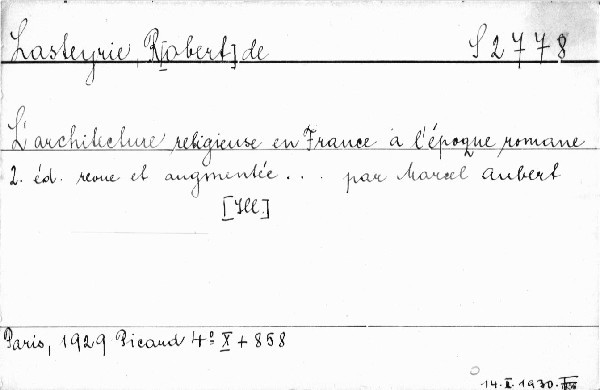 Lasteyrie, R[obert] de S 2778
L'architecture religieuse en France à l'époque romane
2. éd. revue et augmentée... par Marcel Aubert
[Ill.]
Paris, 1929 Picard 4º X + 858
14. X. 1930.